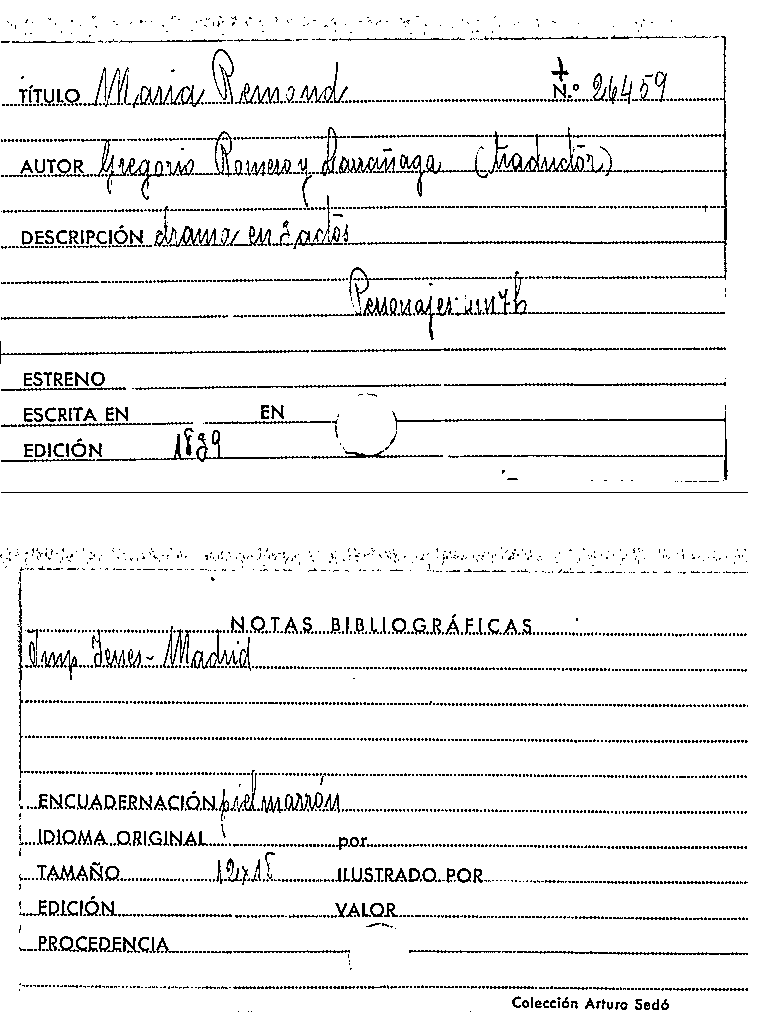 TÍTULO Maria Remond N.º 26459
AUTOR Gregorio Romero y Larrañaga (traductor)
DESCRIPCIÓN drama en 3 actos
Personajes:
ESTRENO
ESCRITA EN EN
EDICIÓN 1839
NOTAS BIBLIOGRÁFICAS
Imp Yenes - Madrid
ENCUADERNACIÓN piel marrón
IDIOMA ORIGINAL por
TAMAÑO 12x18 ILUSTRADO POR
EDICIÓN VALOR
PROCEDENCIA
Colección Arturo Sedó